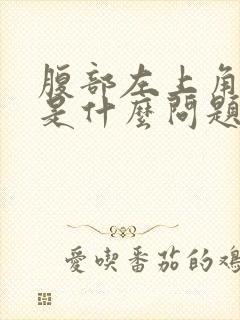 腹部左上角
是什麼問題
愛喫番茄的雞